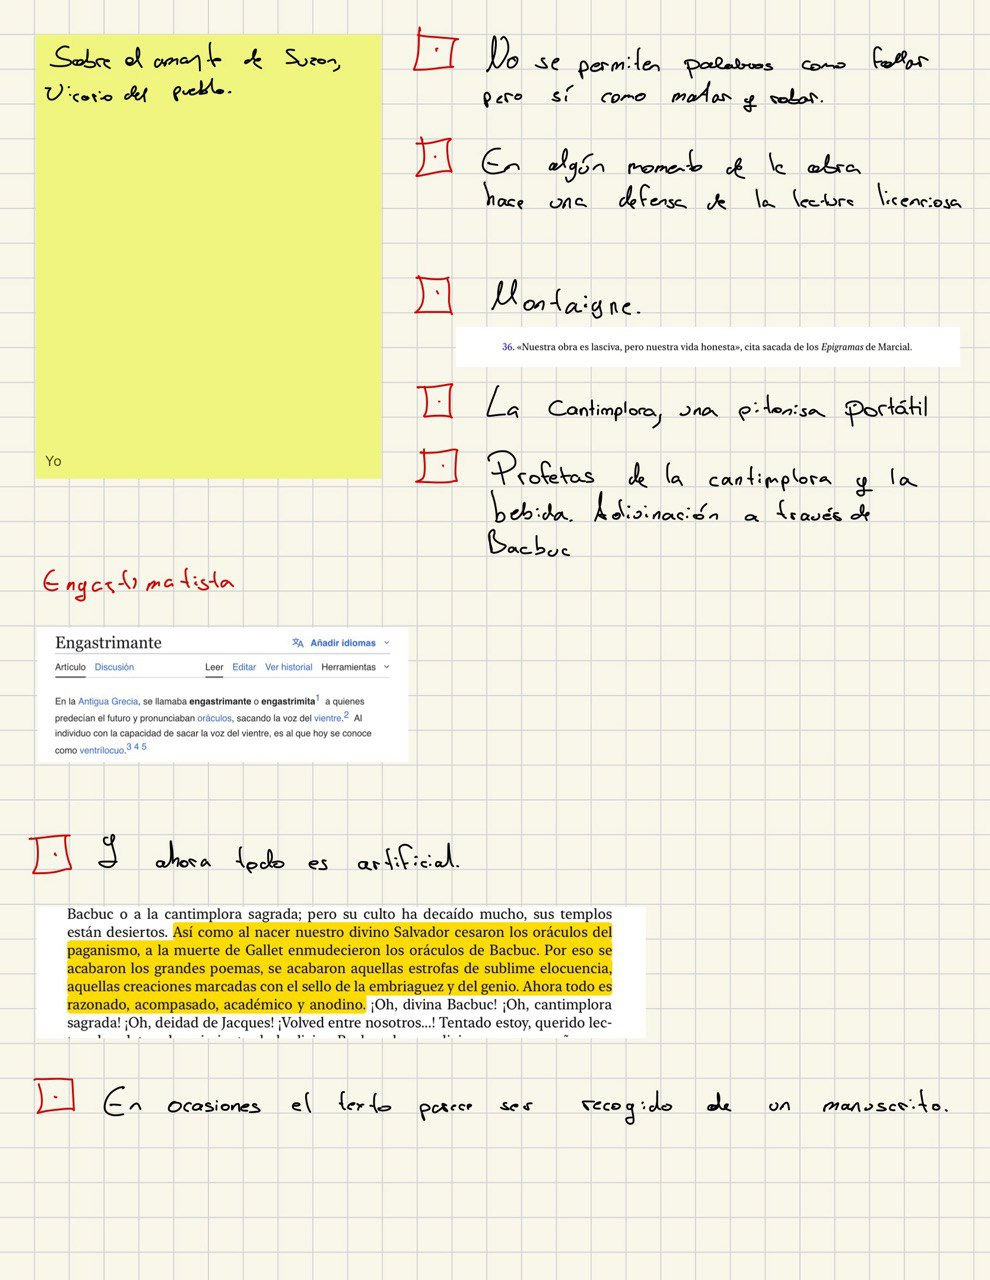 Sobre el amante de Suzon,
Vicario del pueblo.
Yo
No se permiten palabras como follar
pero sí como matar y robar.
En algún momento de la obra
hace una defensa de la lectura licenciosa
Montaigne.
36. «Nuestra obra es lasciva, pero nuestra vida honesta», cita sacada de los Epigramas de Marcial.
La Cantimplora, una pitonisa portátil
Profetas de la cantimplora y la
bebida. Adivinación a través de
Bacbuc
Engastrimatista
Engastrimante
Añadir idiomas
Artículo Discusión Leer Editar Ver historial Herramientas
En la Antigua Grecia, se llamaba engastrimante o engastrimita1 a quienes
predecían el futuro y pronunciaban oráculos, sacando la voz del vientre.2 Al
individuo con la capacidad de sacar la voz del vientre, es al que hoy se conoce
como ventrílocuo.3 4 5
Y ahora todo es artificial.
Bacbuc o a la cantimplora sagrada; pero su culto ha decaído mucho, sus templos
están desiertos. Así como al nacer nuestro divino Salvador cesaron los oráculos del
paganismo, a la muerte de Gallet enmudecieron los oráculos de Bacbuc. Por eso se
acabaron los grandes poemas, se acabaron aquellas estrofas de sublime elocuencia,
aquellas creaciones marcadas con el sello de la embriaguez y del genio. Ahora todo es
razonado, acompasado, académico y anodino. ¡Oh, divina Bacbuc! ¡Oh, cantimplora
sagrada! ¡Oh, deidad de Jacques! ¡Volved entre nosotros...! Tentado estoy, querido lec-
En ocasiones el texto parece ser recogido de un manuscrito.